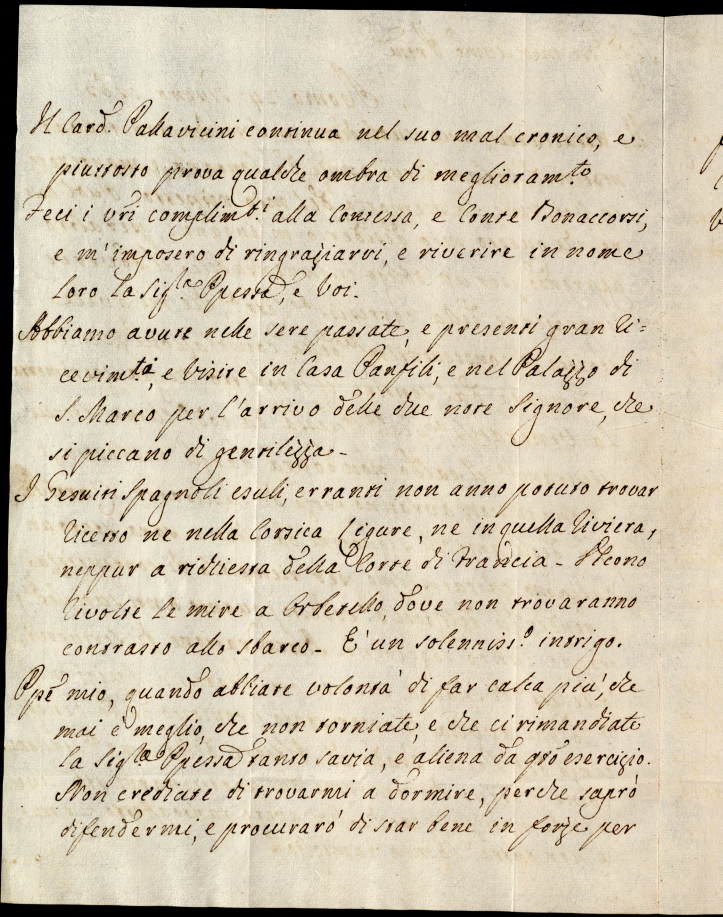 Il Card. Pallavicini continua nel suo mal cronico, e
piuttosto prova qualche ombra di miglioram.to
Feci i vri complim.ti alla Contessa, e Conte Bonaccorsi,
e m'imposero di ringraziarvi, e riverire in nome
loro la Sig.ra Ppessa, e Voi.
Abbiamo avute nelle sere passate, e presenti gran Ri=
cevim.ti, e Visite in Casa Panfili, e nel Palazzo di
S. Marco per l'arrivo delle due note Signore, che
si piccano di gentilezza -
I Gesuiti Spagnoli esuli, erranti non anno potuto trovar
Ricetto ne nella Corsica Ligure, ne in quella Riviera,
neppur a richiesta della Corte di Francia -
Rivolte le mire a Orbetello, dove non trovaranno
contrasto allo sbarco - E' un solenniss.o intrigo.
Ppe mio, quando abbiate volontà di far calca più, che
mai è meglio, che non torniate, e che ci rimandiate
la Sig.ra Ppessa tanto savia, e aliena da qto esercizio.
Non crediate di trovarmi a dormire, perche saprò
difendermi, e procurarò di star bene in forze per